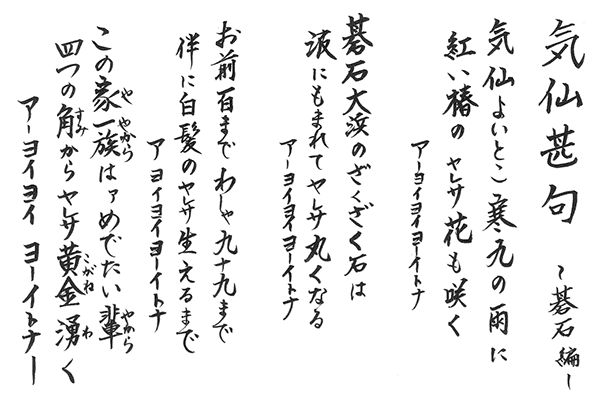 気仙甚句 ～碁石編～
気仙よいとこ寒九の雨に
紅い椿の ヤレサ 花も咲く
アーヨイヨイヨーイトナ
碁石大浜のざくざく石は
波にもまれて ヤレサ 丸くなる
アーヨイヨイヨーイトナ
お前百まで わしゃ九十九まで
伴に白髪の ヤレサ 生えるまで
アヨイヨイヨーイトナ
この家一族はァめでたい輩
や やから やから
四つの角から ヤレサ 黄金湧く
すみ こがね わ
アーヨイヨイ ヨーイトナー